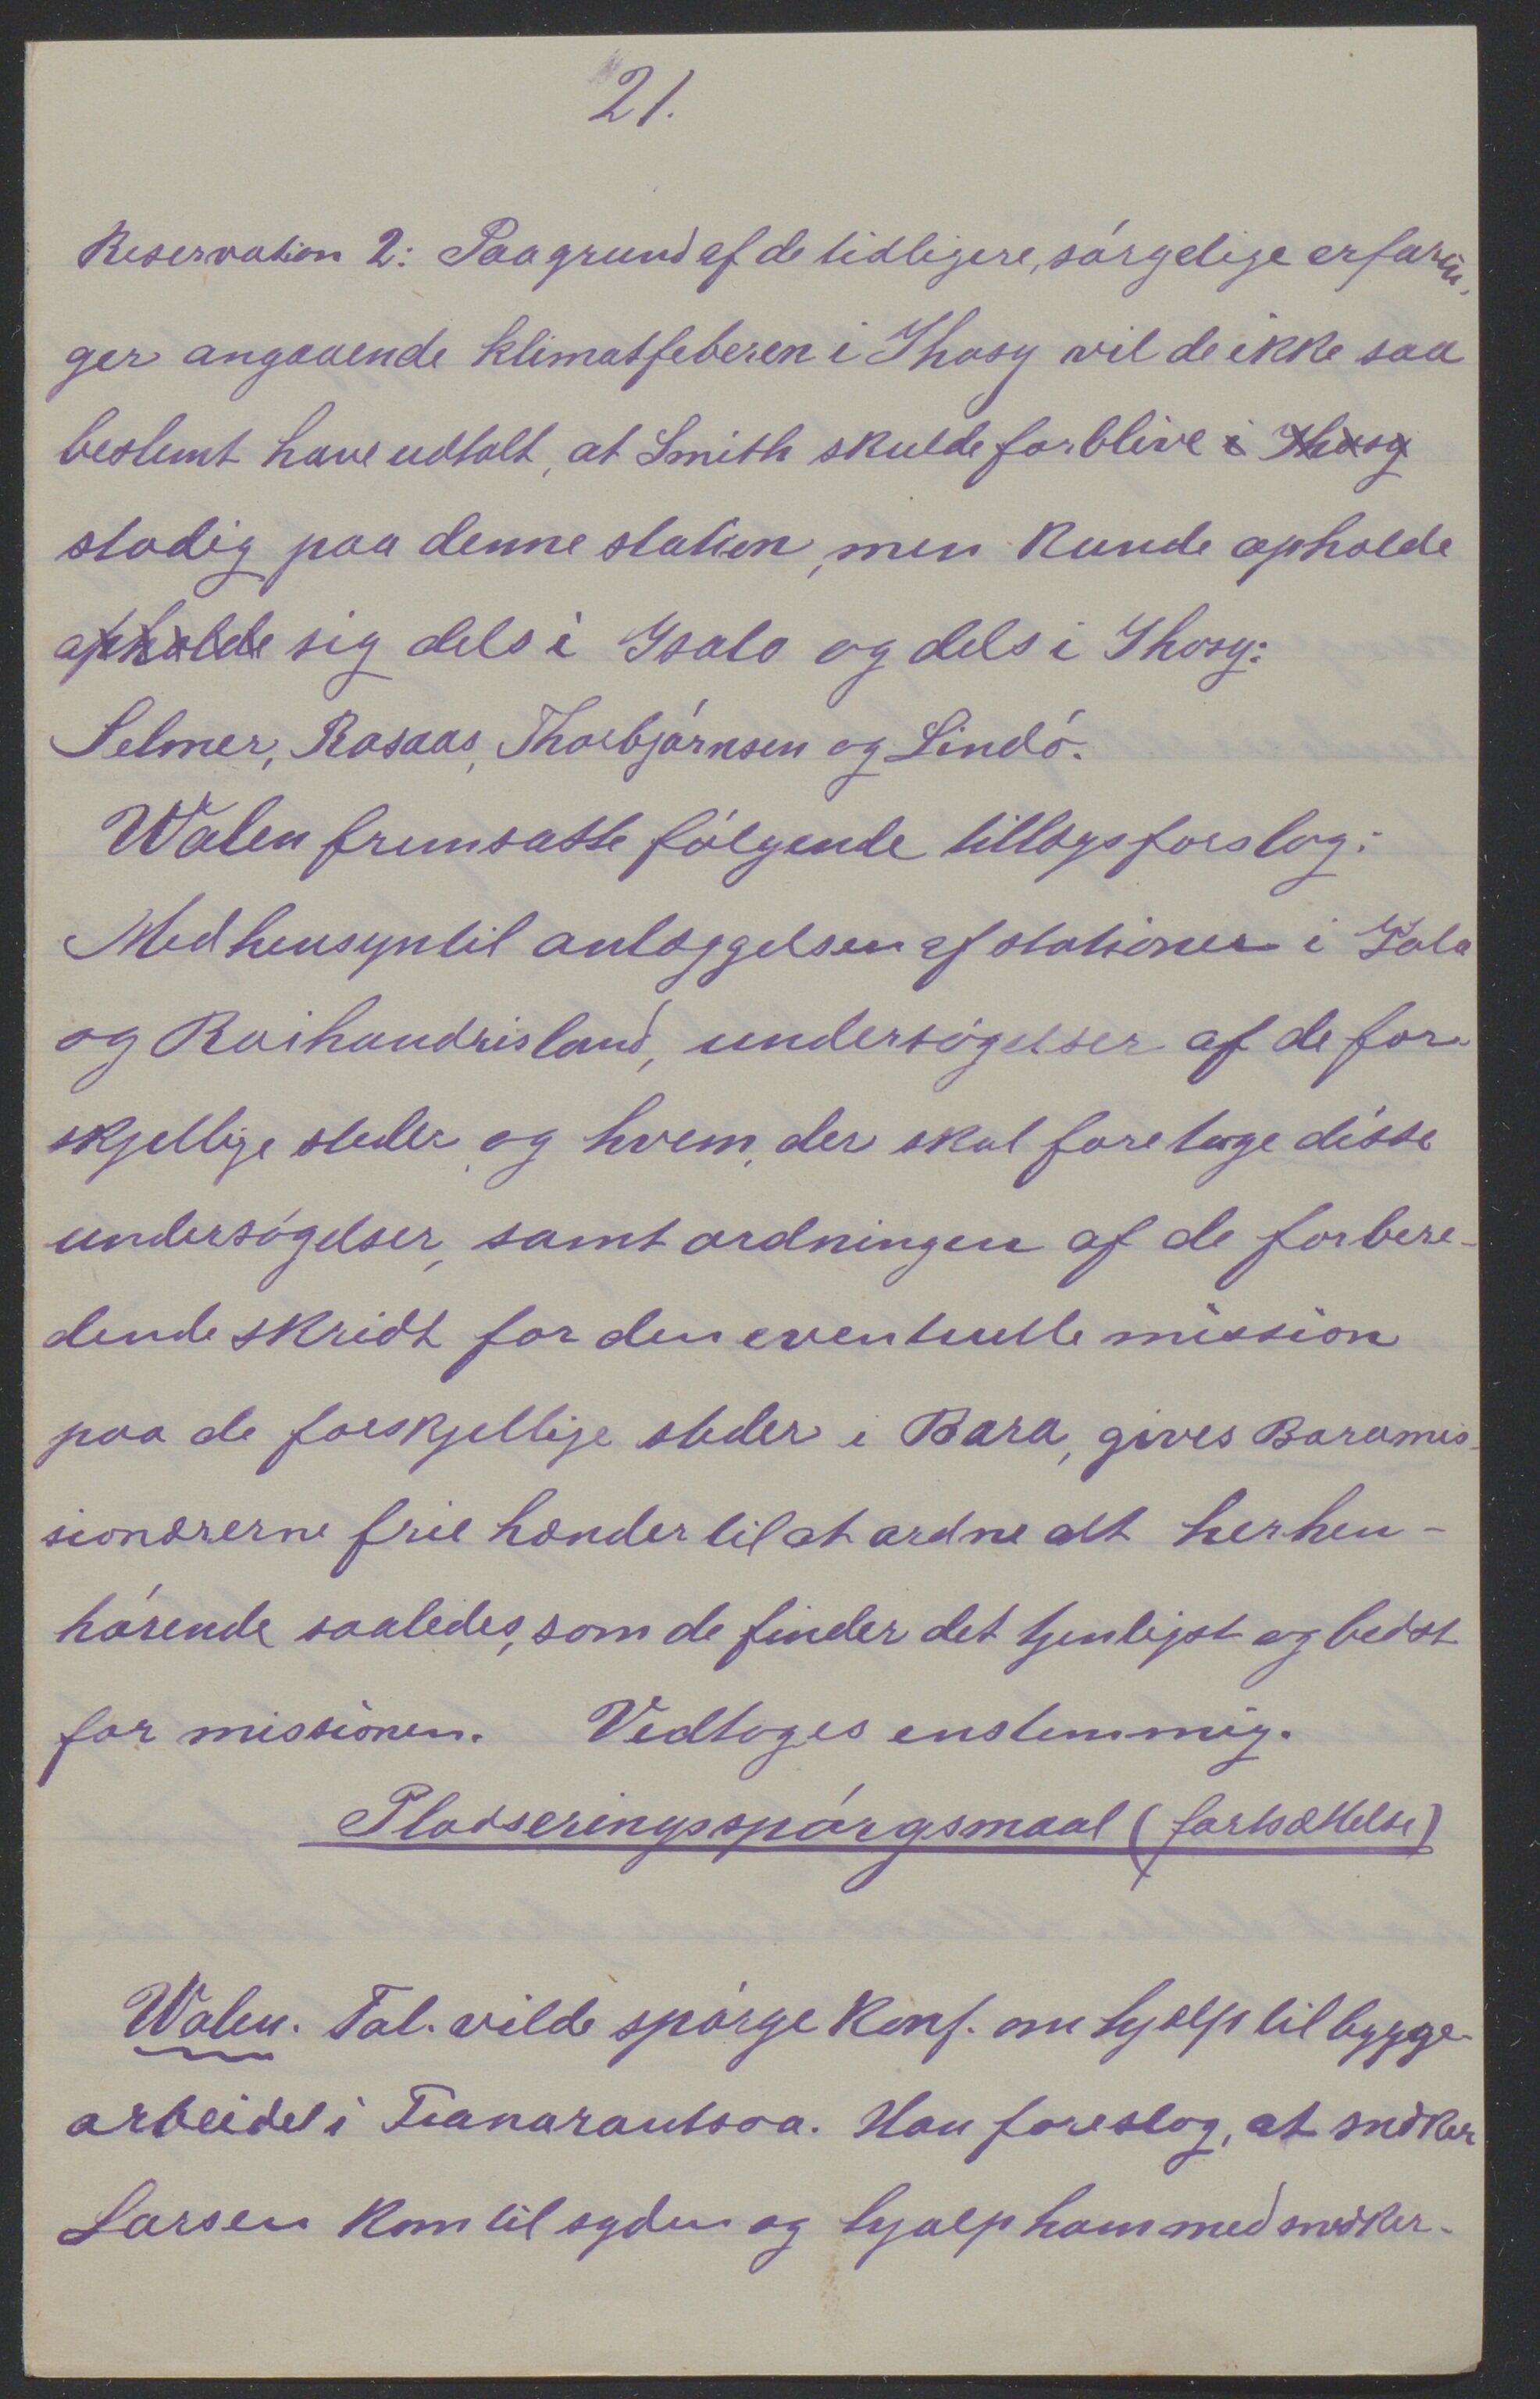 21.
Reservation 2: Paa grund af de tidligere, sórgelige erfarin-
ger angaaende klimatfeberen i Ihosy vil de ikke saa
bestemt have udtalt, at Smith skulde forblive i Ihosy
stadig paa denne station, men kunde opholde
opholde sig dels i Isalo og dels i Ihosy:
Selmer, Rosaas, Thorbjórnsen og Lindó.
Walen fremsatte fólgende tillægsforslag:
Med hensyn til anlæggelsen af stationer i Iola
og Raihandrisland, undersógelser af de for-
skjellige steder, og hvem, der skal foretage disse
undersógelser, samt ordningen af de forbere-
dende skridt for den eventuelle mission
paa de forskjellige steder i Bara, gives Baramis-
sionærerne frie hænder til at ordne alt herhen-
hórende saaledes, som de finder det tjenligst og bedst
for missionen. Vedtoges enstemmig.
Pladseringsspórgsmaal (fortsættelse)
Walen. Tal. vilde spórge konf. om hjælp til bygge-
arbeidet i Fianarantsoa. Han foreslog, at snedker
Larsen kom til syden og hjalp ham med snedker-